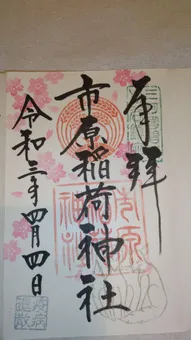 奉拝
市原稲荷神社
令和三年四月四日